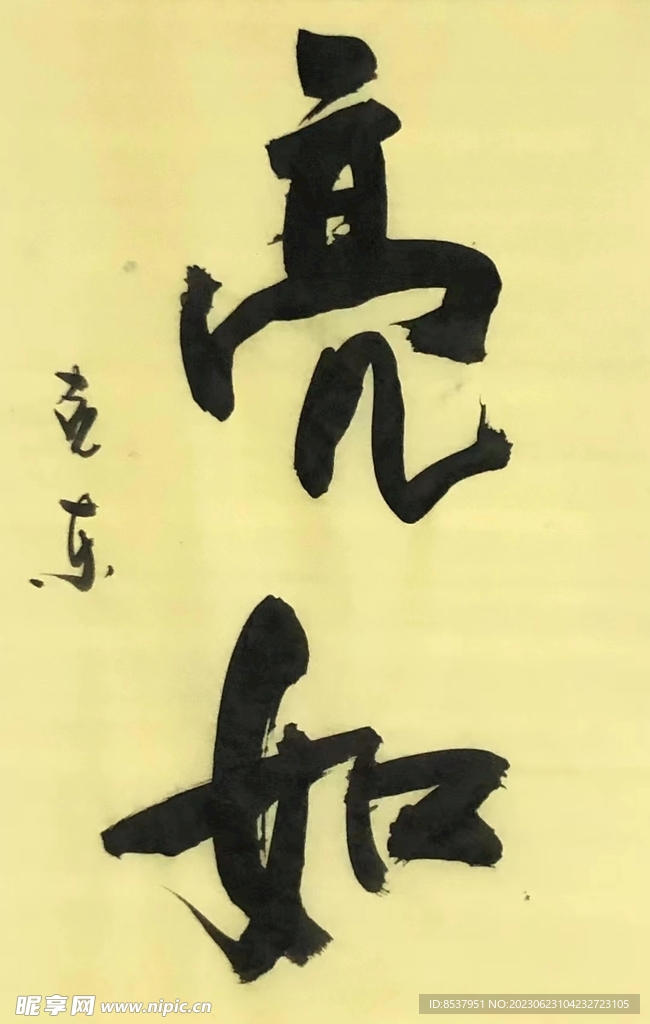 亮如
克东
昵享网 www.nipic.cn
ID:8537951 NO:20230623104232723105